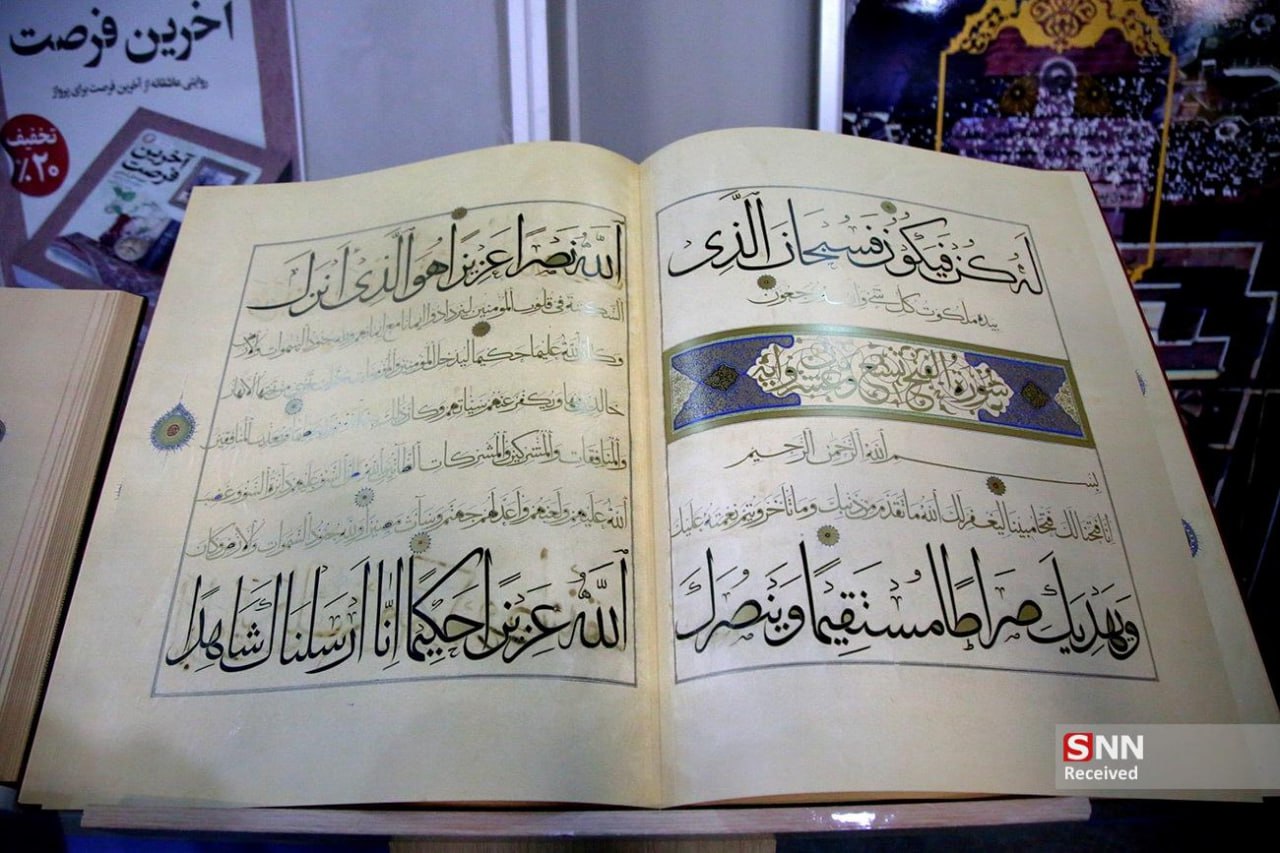 آخرین فرصت
روایتی عاشقانه از آخرین فرصت برای پرواز
تخفیف
٪۲۰
آخرین
فرصت
لَهُ كُنْ فَيَكُونُ فَسُبْحَانَ الَّذِي
بيده ملكوت كل شيء واليه ترجعون
سورة الفتح تسع وعشرون آية
بسم الله الرحمن الرحيم
انا فتحنا لك فتحا مبينا ليغفر لك الله ما تقدم من ذنبك وما تأخر ويتم نعمته عليك
وَيَهْدِيَكَ صِرَاطًا مُسْتَقِيمًا وَيَنْصُرَكَ
اللَّهُ نَصْرًا عَزِيزًا هُوَ الَّذِي أَنْزَلَ
السكينة في قلوب المؤمنين ليزدادوا ايمانا مع ايمانهم ولله جنود السموات والارض
وكان الله عليما حكيما ليدخل المؤمنين والمؤمنات جنات تجري من تحتها الانهار
خالدين فيها ويكفر عنهم سيئاتهم وكان ذلك ويعذب المنافقين
والمنافقات والمشركين والمشركات الظانين بالله ظن السوء عليهم دائرة السوء وغضب
الله عليهم ولعنهم واعد لهم جهنم وساءت مصيرا ولله جنود السموات والارض وكان
اللَّهُ عَزِيزًا حَكِيمًا إِنَّا أَرْسَلْنَاكَ شَاهِدًا
SNN
Received